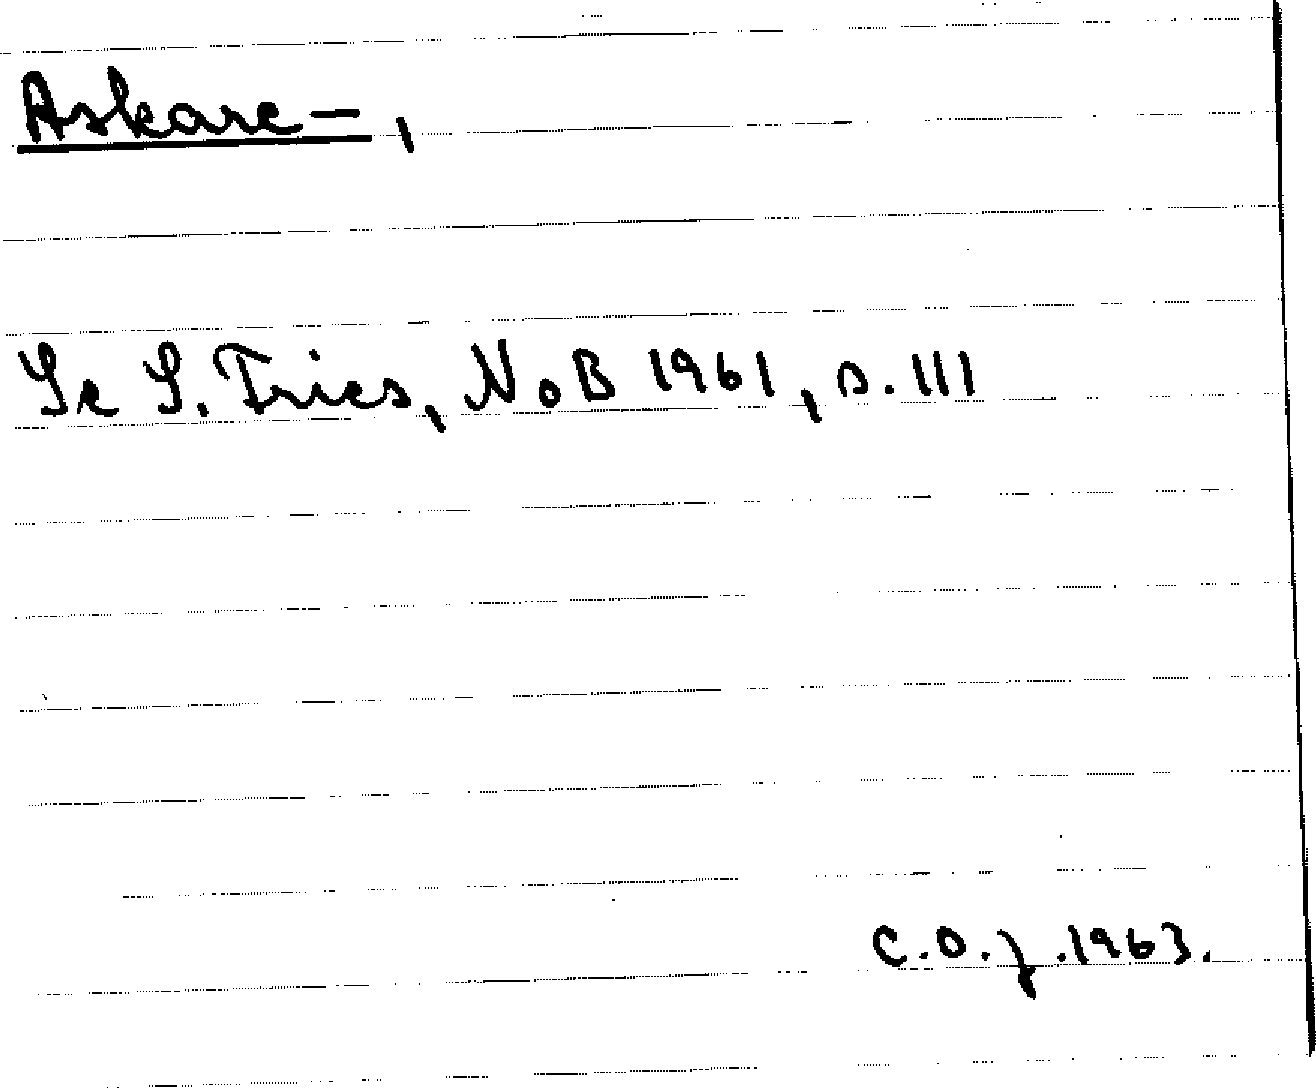 Askare-,
Se S. Fries, NoB 1961, s. 111
C.O.J. 1963.